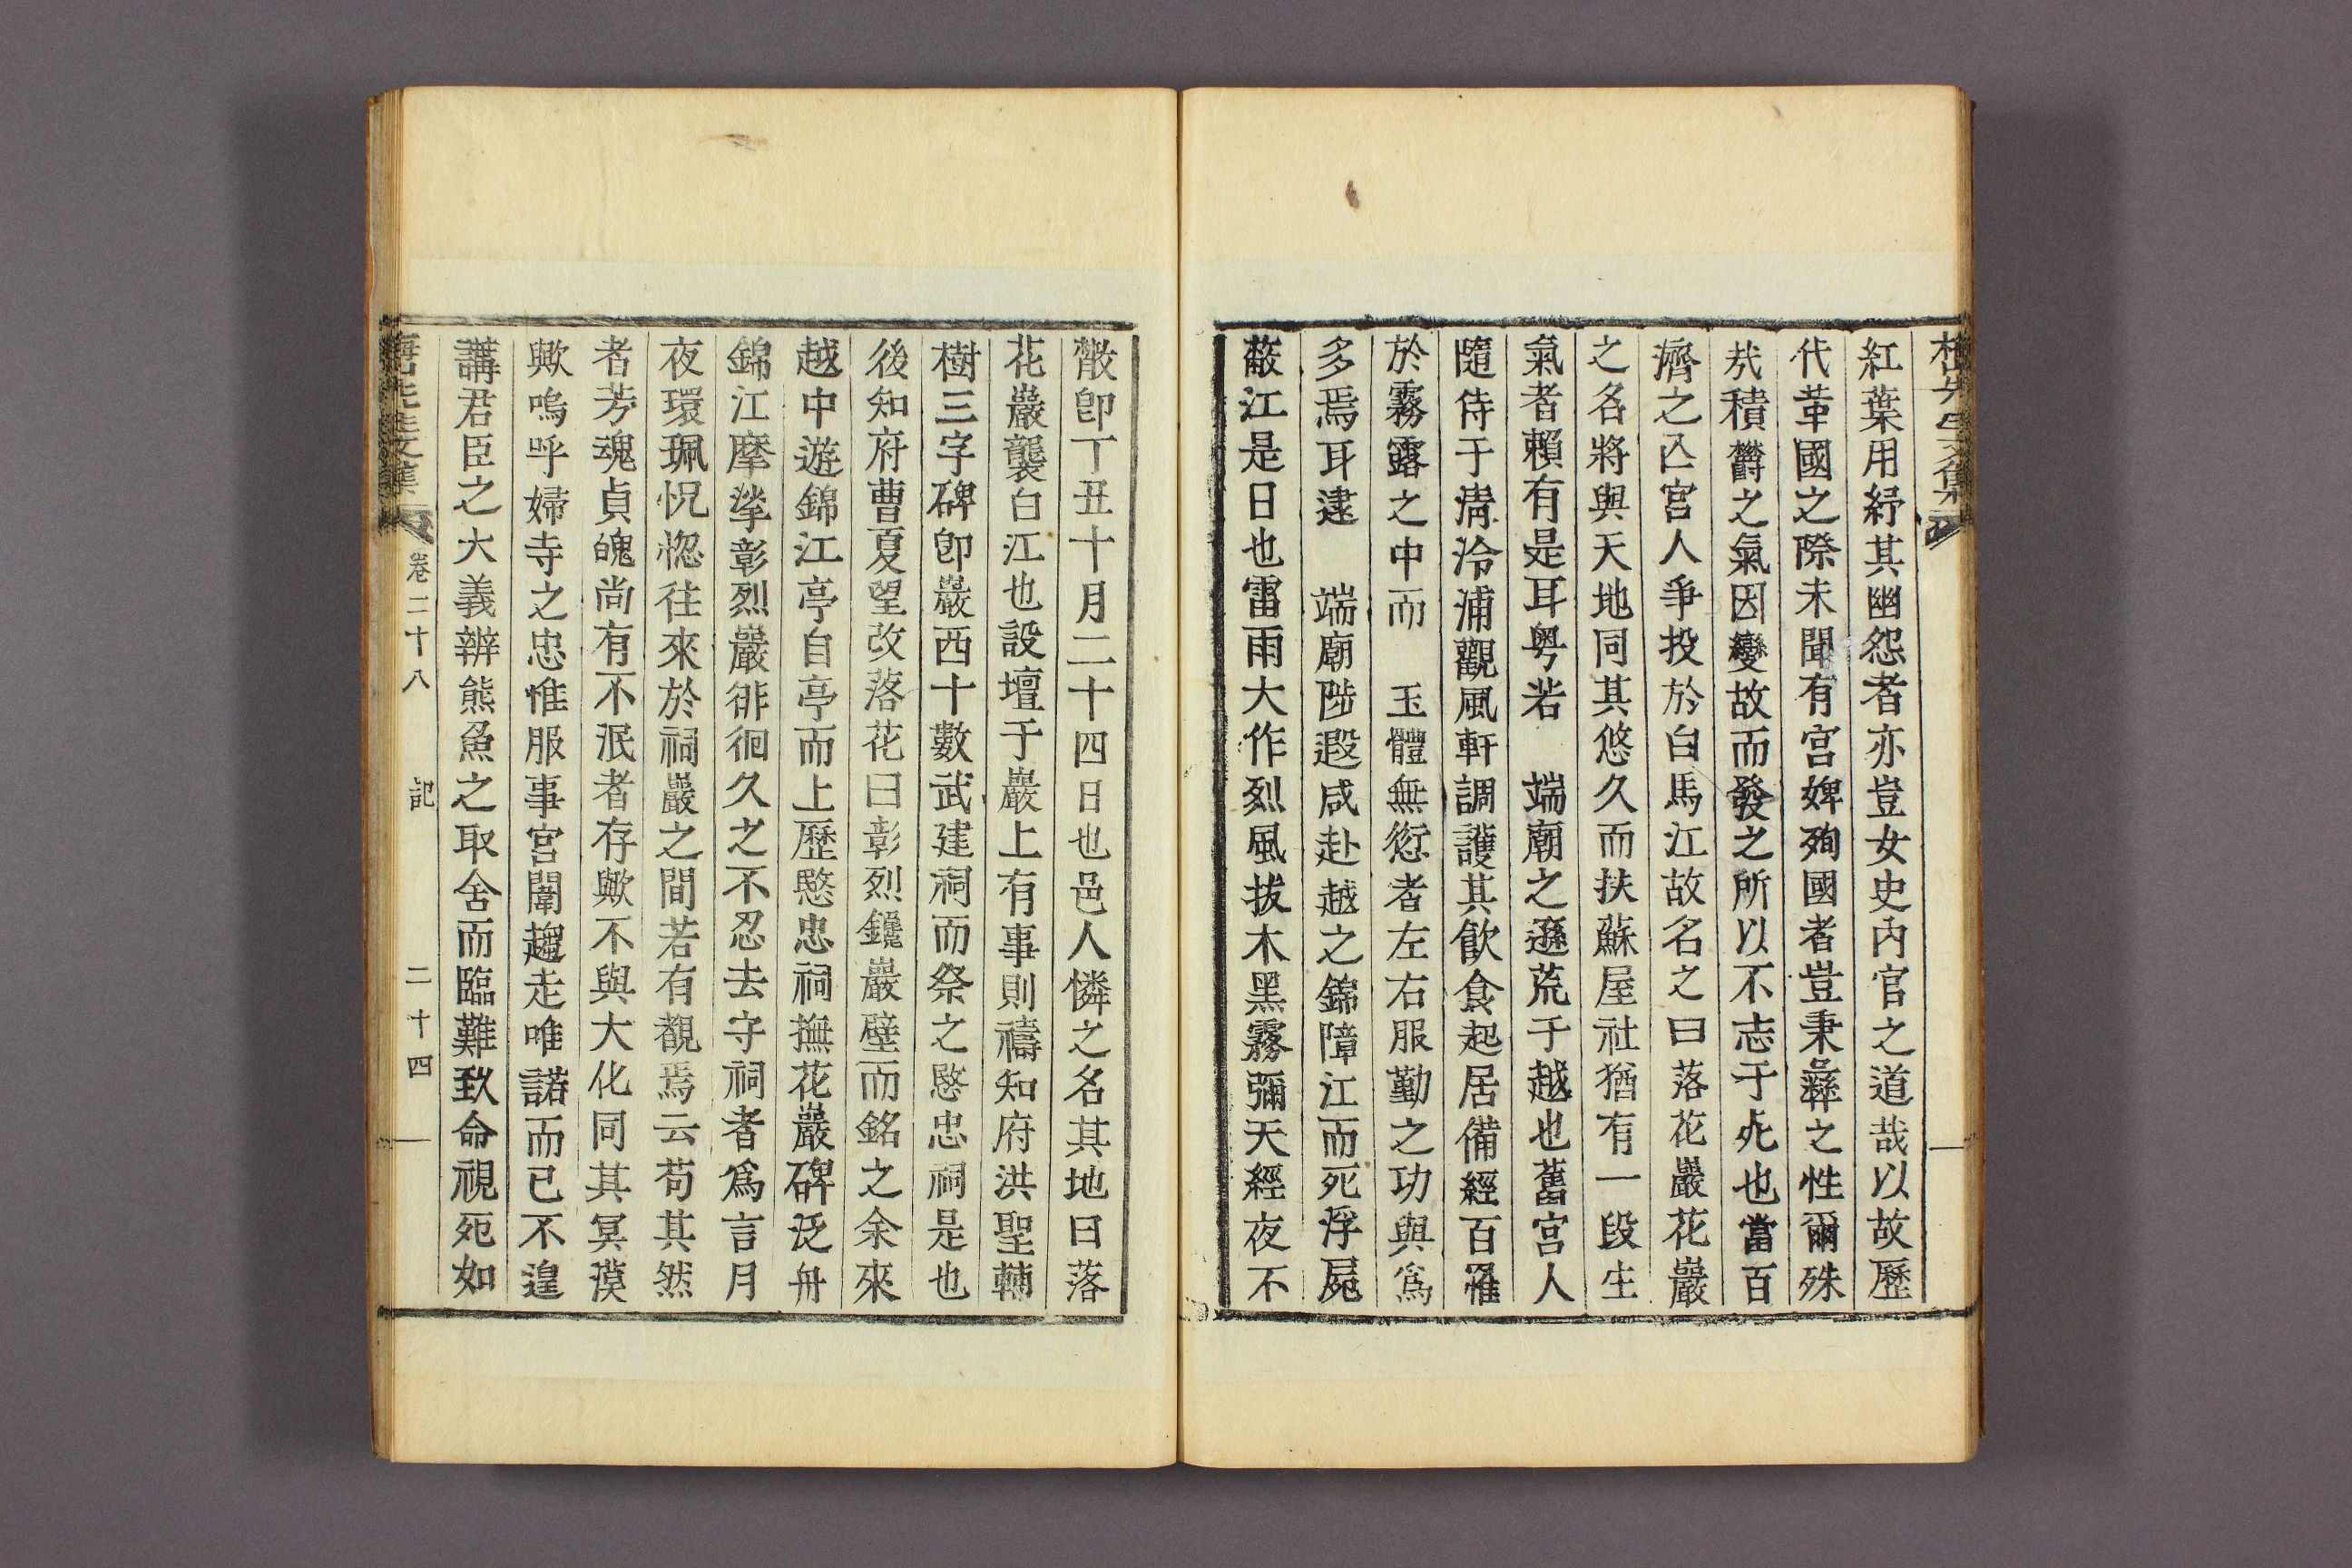 梅山先生文集
紅葉用紓其幽怨者亦豈女史內官之道哉以故歷
代革國之際未聞有宮婢殉國者豈秉彝之性爾殊
㢤積欝之氣因變故而發之所以不志于死也當百
濟之亾宮人爭投於白馬江故名之曰落花巖花巖
之名將與天地同其悠久而扶蘇屋社猶有一段生
氣者賴有是耳粤若 端廟之遜荒于越也舊宮人
隨侍于淸泠浦觀風軒調護其飮食起居備經百罹
於霧露之中而 玉體無愆者左右服勤之功與爲
多焉耳逮 端廟陟遐咸赴越之錦障江而死浮屍
蔽江是日也雷雨大作烈風拔木黑霧彌天經夜不
散卽丁丑十月二十四日也邑人憐之名其地曰落
花巖襲白江也設壇于巖上有事則禱知府洪聖輔
樹三字碑卽巖西十數武建祠而祭之愍忠祠是也
後知府曹夏望改落花曰彰烈鑱巖壁而銘之余來
越中遊錦江亭自亭而上歷愍忠祠撫花巖碑泛舟
錦江摩挲彰烈巖徘徊久之不忍去守祠者爲言月
夜環珮怳惚往來於祠巖之間若有覩焉云苟其然
者芳魂貞魄尙有不泯者存歟不與大化同其冥漠
歟嗚呼婦寺之忠惟服事宮闈趨走唯諾而已不遑
講君臣之大義辨熊魚之取舍而臨難致命視死如
梅山先生文集 卷二十八 記 二十四